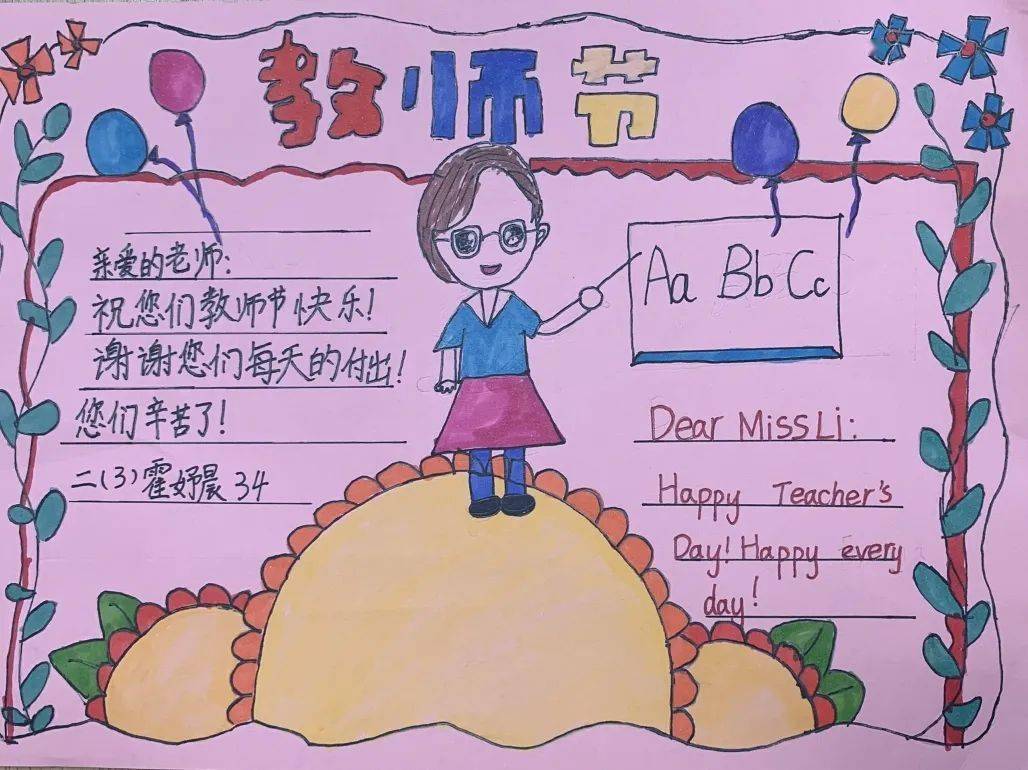 教师节
亲爱的老师:
祝您们教师节快乐!
谢谢您们每天的付出!
您们辛苦了!
二(3)霍妤晨 34
Aa Bb Cc
Dear Miss Li:
Happy Teacher's
Day! Happy every
day!